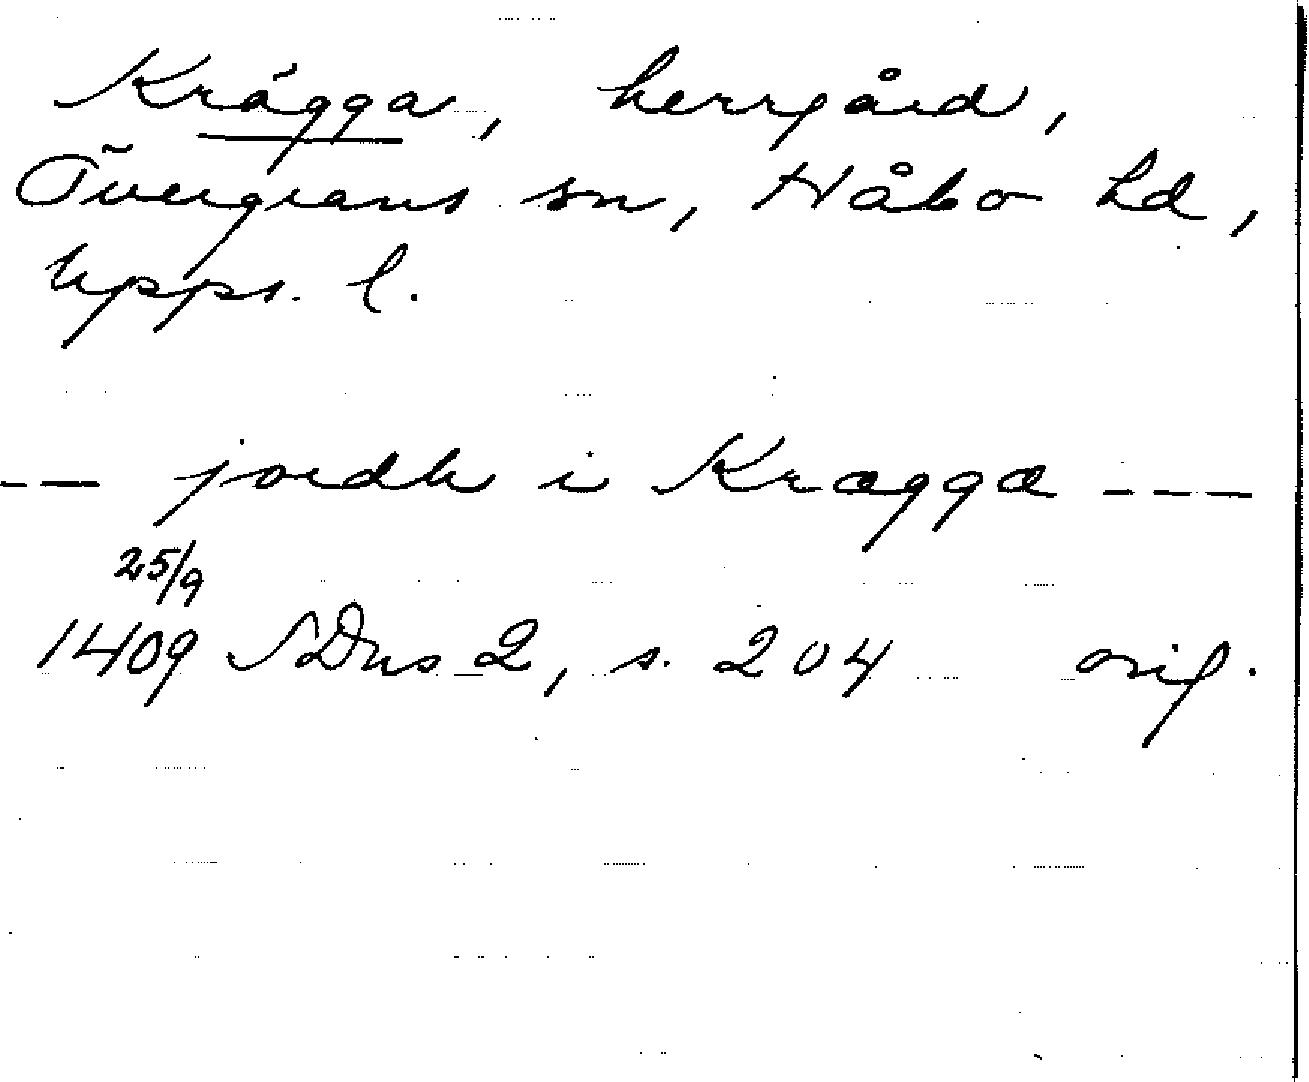 Krägga, herrgård,
Övergrans sn, Håbo hd,
Upps. l.
--- jordh i Krægga ---
25/9
1409 SDns 2, s. 204 orig.